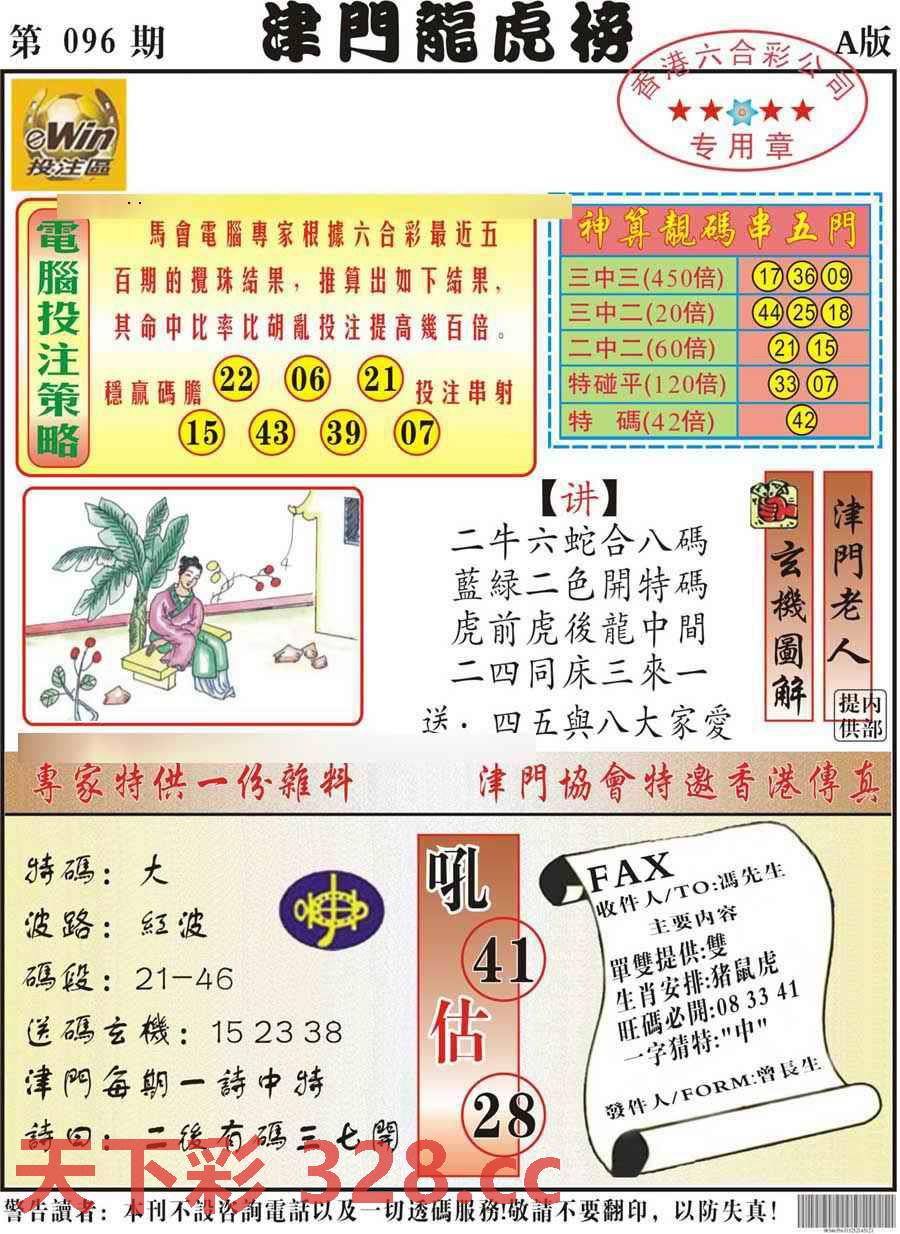 第 096 期
津門龍虎榜
A版
香港六合彩公司
专用章
eWin
投注區
電腦投注策略
馬會電腦專家根據六合彩最近五
百期的攪珠結果，推算出如下結果，
其命中比率比胡亂投注提高幾百倍。
穩贏碼膽 22 06 21 投注串射
15 43 39 07
神算靚碼串五門
三中三(450倍) 17 36 09
三中二(20倍) 44 25 18
二中二(60倍) 21 15
特碰平(120倍) 33 07
特 碼(42倍) 42
【讲】
二牛六蛇合八碼
藍緑二色開特碼
虎前虎後龍中間
二四同床三來一
送．四五與八大家愛
玄機圖解
津門老人
内部提供
專家特供一份雜料
津門協會特邀香港傳真
特碼：大
波路：紅波
碼段：21-46
送碼玄機：15 23 38
津門每期一詩中特
詩曰：二後有碼三七開
吼
41
估
28
FAX
收件人/TO:馮先生
主要内容
單雙提供:雙
生肖安排:猪鼠虎
旺碼必開:08 33 41
一字猜特:"中"
發件人/FORM:曾長生
天下彩 328.cc
警告讀者：本刊不設咨詢電話以及一切透碼服務!敬請不要翻印，以防失真！